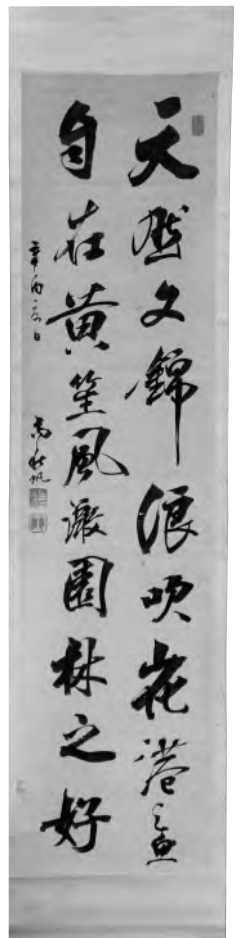 天然文錦浪吹花港之魚
自在黃笙風激園林之好
辛酉日
高秋帆